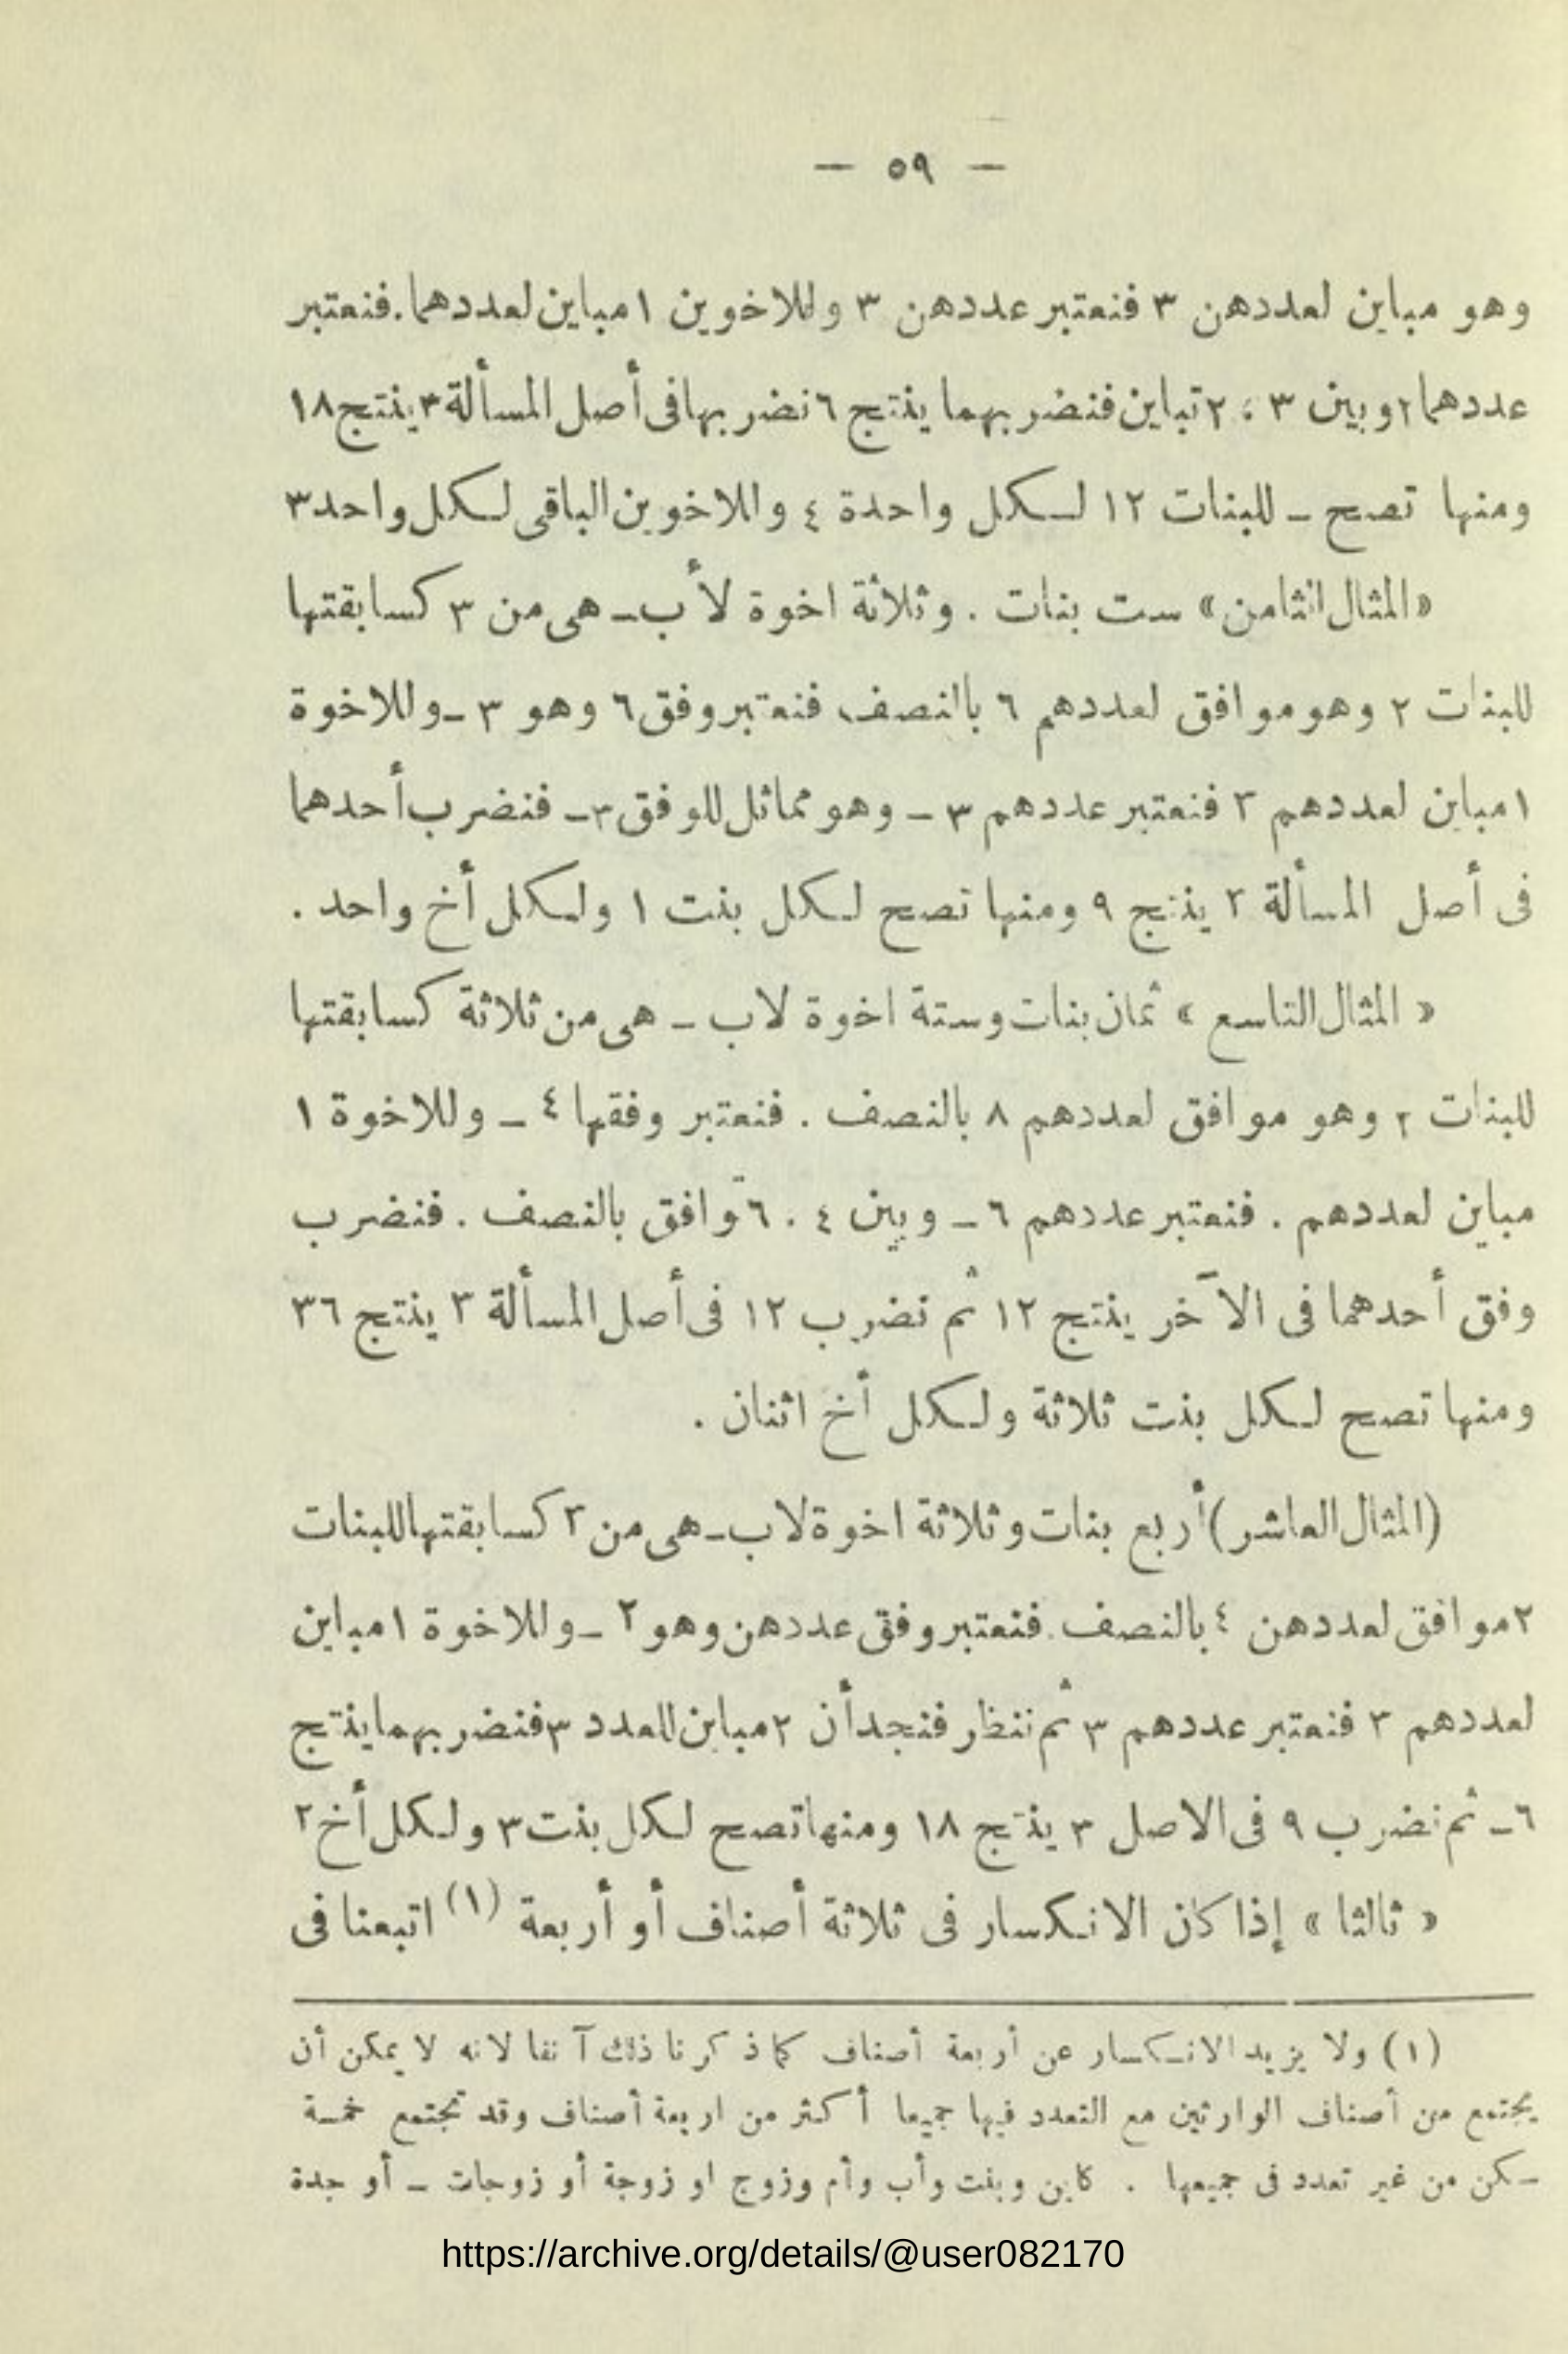 — ٥٩ —
وهو مباين لعددهن ٣ فنعتبر عددهن ٣ وللاخوين ١ مباين لعددهما. فنعتبر
عددهما ٢ وبين ٣ ، ٢ تباين فنضربهما ينتج ٦ نضربها فى أصل المسألة ٣ ينتج ١٨
ومنها تصح ـ للبنات ١٢ لـكل واحدة ٤ وللاخوين الباقى لـكل واحد ٣
« المثال الثامن » ست بنات . وثلاثة اخوة لأب ـ هى من ٣ كسابقتها
للبنات ٢ وهو موافق لعددهم ٦ بالنصف، فنعتبر وفق ٦ وهو ٣ ـ وللاخوة
١ مباين لعددهم ٣ فنعتبر عددهم ٣ ـ وهو مماثل للوفق ٣ ـ فنضرب أحدهما
فى أصل المسألة ٣ ينتج ٩ ومنها تصح لـكل بنت ١ ولـكل أخ واحد .
« المثال التاسع » ثمان بنات وستة اخوة لاب ـ هى من ثلاثة كسابقتها
للبنات ٢ وهو موافق لعددهم ٨ بالنصف . فنعتبر وفقها ٤ ـ وللاخوة ١
مباين لعددهم . فنعتبر عددهم ٦ ـ وبين ٤ . ٦ توافق بالنصف . فنضرب
وفق أحدهما فى الآخر ينتج ١٢ ثم نضرب ١٢ فى أصل المسألة ٣ ينتج ٣٦
ومنها تصح لـكل بنت ثلاثة ولـكل أخ اثنان .
(المثال العاشر) أربع بنات وثلاثة اخوة لاب ـ هى من ٣ كسابقتها للبنات
٢ موافق لعددهن ٤ بالنصف. فنعتبر وفق عددهن وهو ٢ ـ وللاخوة ١ مباين
لعددهم ٣ فنعتبر عددهم ٣ ثم ننظر فنجد أن ٢ مباين للعدد ٣ فنضربهما ينتج
٦ ـ ثم نضرب ٩ فى الاصل ٣ ينتج ١٨ ومنها تصح لـكل بنت ٣ ولـكل أخ ٢
« ثالثا » إذا كان الانـكسار فى ثلاثة أصناف أو أربعة (١) اتبعنا فى
(١) ولا يزيد الانـكسار عن أربعة أصناف كما ذكرنا ذلك آنفا لانه لا يمكن أن
يجتمع من أصناف الوارثين مع التعدد فيها جميعا أكثر من اربعة أصناف وقد تجتمع خمسة
ـكن من غير تعدد فى جميعها . كابن وبنت وأب وأم وزوج او زوجة أو زوجات ـ أو جدة
https://archive.org/details/@user082170